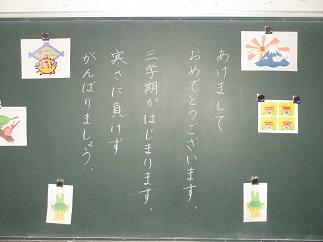 あけまして
おめでとうございます。
三学期がはじまります。
寒さに負けず
がんばりましょう。